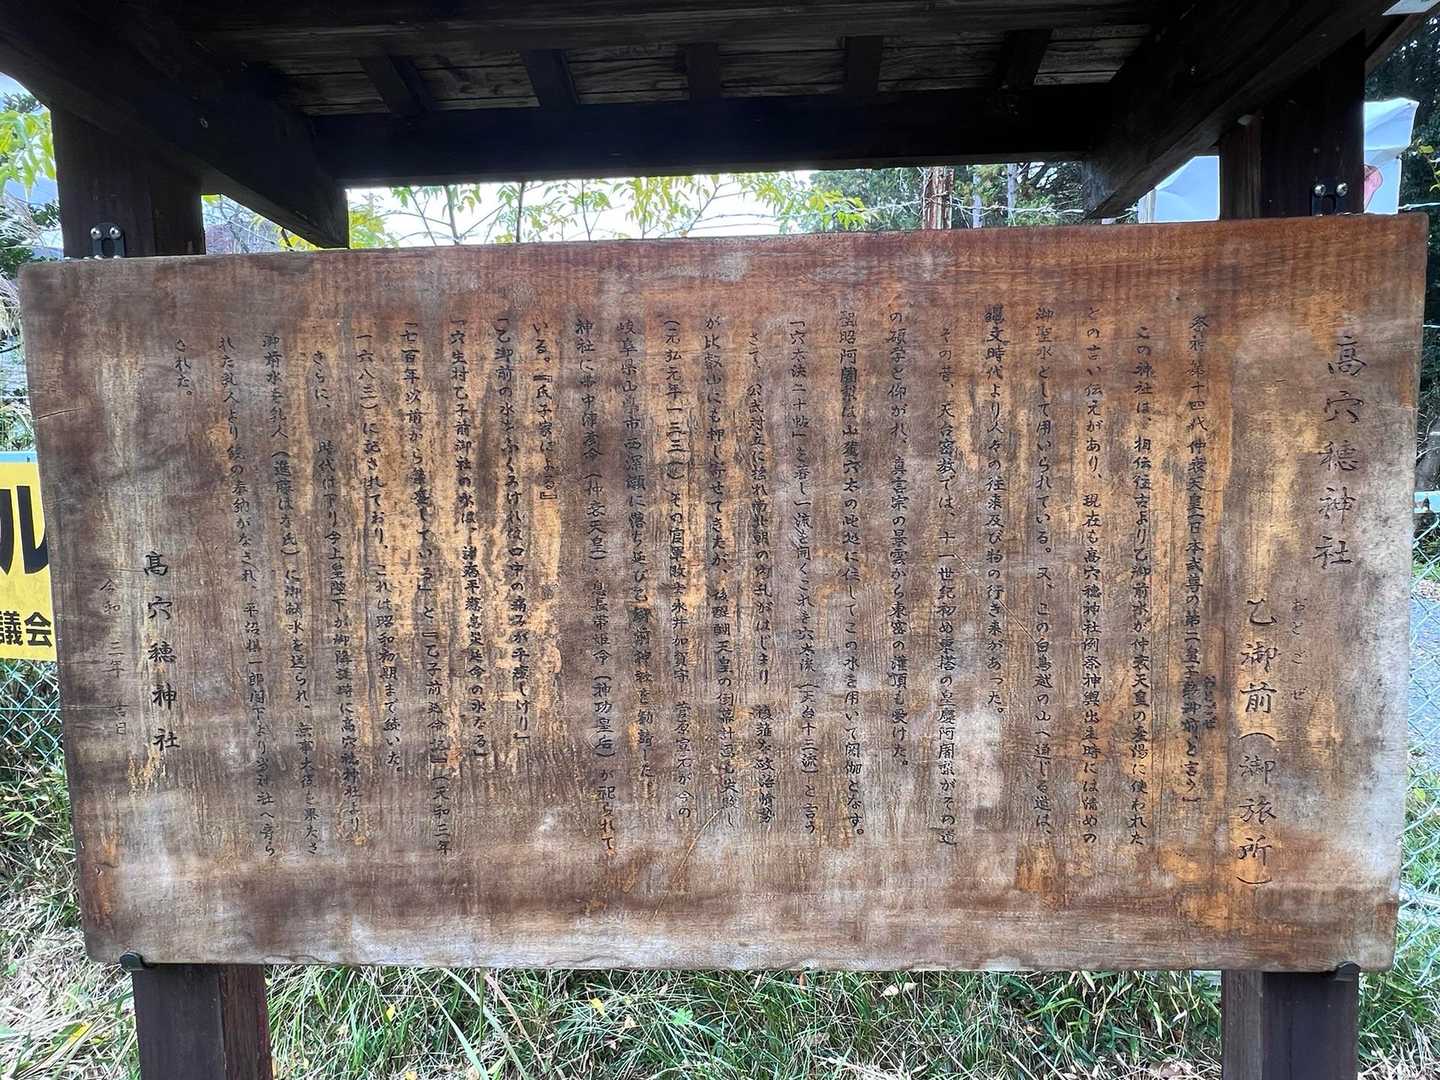 高穴穂神社
乙御前（御旅所）
おとごぜ
祭神 第十四代仲哀天皇「日本武尊の第二皇子
御前と言う」
この神社は、相伝往古より乙御前水が仲哀天皇の産湯に使われた
との言い伝えがあり、現在も高穴穂神社例祭神輿出立時には清めの
御聖水として用いられている。又、この白鳥越の山へ通じる道は、
縄文時代より人々の往来及び物の行き来があった。
その昔、天台密教では、十一世紀初め東塔の皇慶阿闍梨がその道
の碩学と仰がれ、真言宗の景雲から東密の灌頂も受けた。
聖昭阿闍梨は山麓穴太の此地に住してこの水を用いて閼伽となす。
「穴太決二十帖」を著し一流を開くこれを穴太流（天台十三流）と言う
さて、公武対立に揺れ南北朝の内乱がはじまり 複雑な政治情勢
が比叡山にも押し寄せてきたが、後醍醐天皇の倒幕計画は失敗し
（元弘元年一三三一）その官軍敗士永井加賀守 菅原宣元が今の
岐阜県山県市西深瀬に落ち延び乙御前神社を勧請した
神社に帯中津彦命（仲哀天皇） 息長帯姫命（神功皇后）が祀られて
いる。『氏子家による』
「乙御前の水にふくみけれは口中の痛みが平癒しけり」
「穴生村乙子前御社の水は、諸病平癒息災延命の水なる」
「七百年以前から
している」と『乙子前
』（天和三年
一六八三）に記されており、これは昭和初期まで続いた。
さらに、 時代は下り今上皇陛下が御降誕時に高穴穂神社より
御前水を乳人（進藤はな氏）に御献水を送られ、無事大役を果たさ
れた乳人より鏡の奉納がなされ、平沼騏一郎閣下より当神社へ寄ら
された。
高穴穂神社
令和 三年 吉日
ル
議会